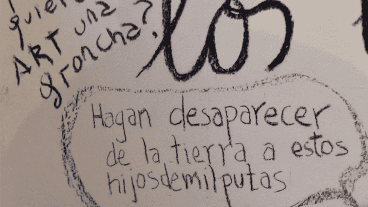 quier
ART una
groncha?
los
Hagan desaparecer
de la tierra a estos
hijosdemilputas